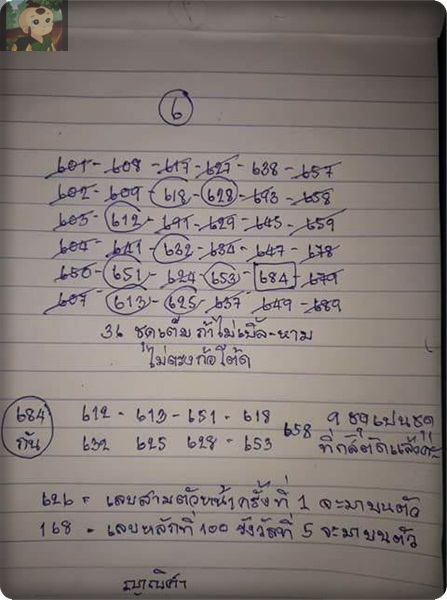 6
601 - 608 - 617 - 627 - 638 - 657
602 - 609 - 618 - 628 - 643 - 658
603 - 612 - 691 - 629 - 645 - 659
604 - 641 - 632 - 634 - 647 - 678
650 - 651 - 624 - 653 - 684 - 679
607 - 613 - 625 - 637 - 649 - 689
36 ชุดเต็ม ถ้าไม่เบิ้ล-หาม
ไม่ตรงก็โต๊ด
684 612 - 613 - 651 - 618 658 9 ชุดเป็นชุด
กัน 632 625 628 - 653 ที่กล้าตัดแล้วค่ะ
626 = เลขสามตัวหน้าครั้งที่ 1 จะมาบนตัว
168 = เลขหลักที่ 100 รางวัลที่ 5 จะมาบนตัว
ญาณิศา